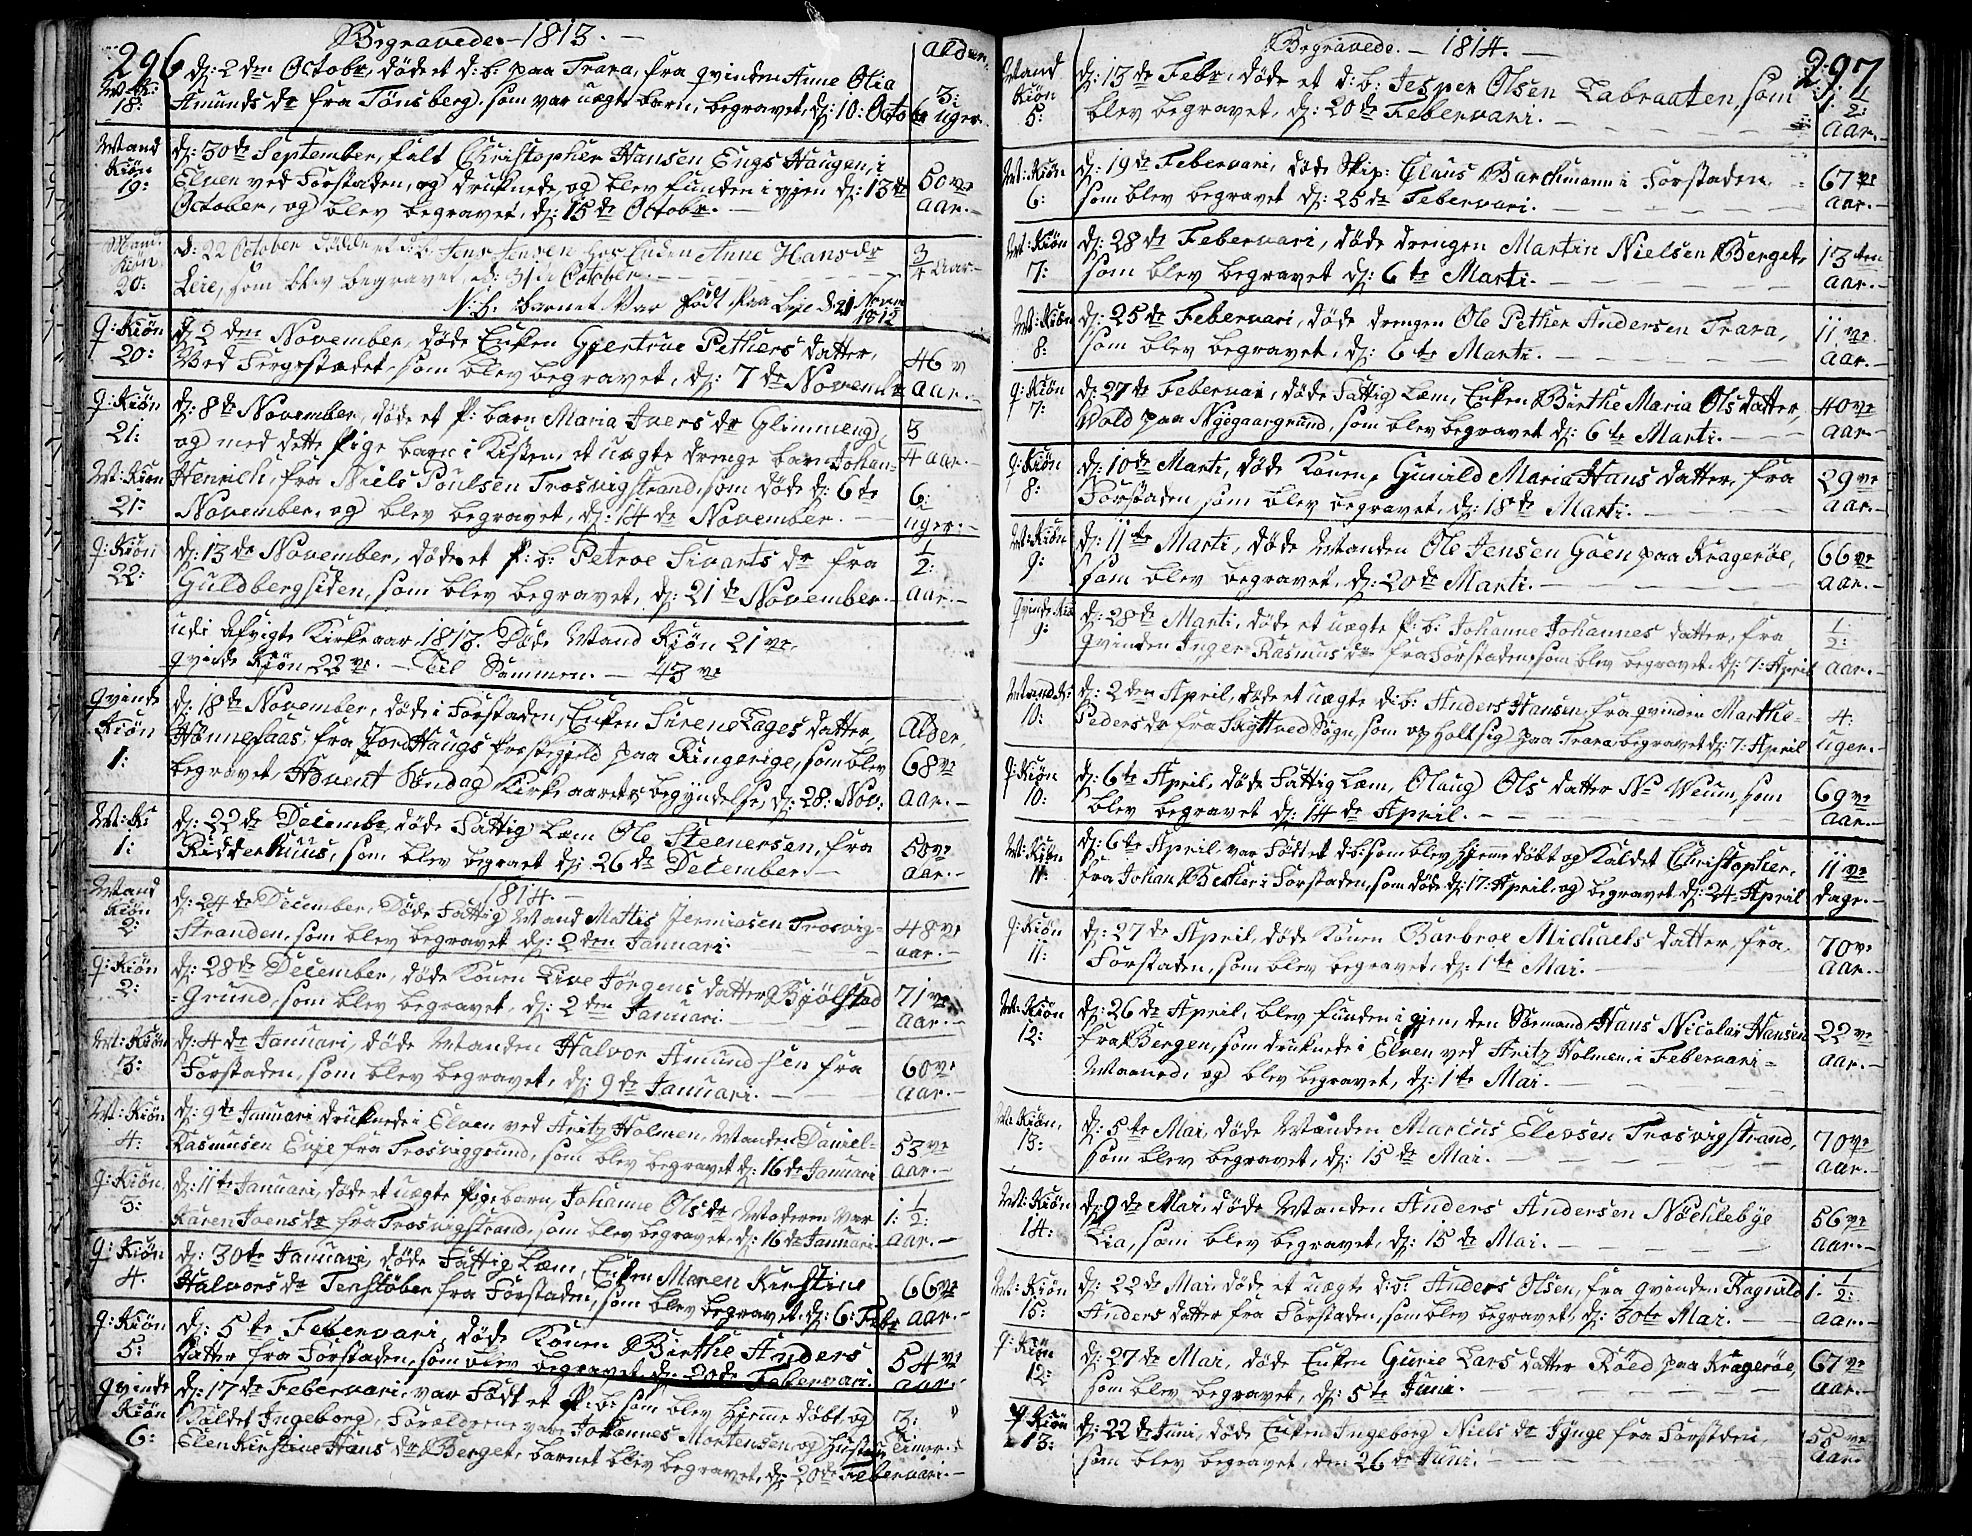 296
Begravede. - 1813. -
Alder.
M: K:
18:
d: 2 den Octobr, døde et d: b: paa Trara, fra qvinden Anne Olia
Amunds dr fra Tønsberg, som var uægte barn, begravet, d: 10: Octobr
3:
6 uger.
Mand
Kiøn
19:
d: 30 de September, falt Christopher Hansen Engs Haugen, i
Elven ved Forstaden, og druknede, og blev funden i gjen d: 13 de
October, og blev begravet, d: 15 de Octobr. -
50 ve
aar. -
Mand
Kiøn
20:
d: 22 October dødde et d: b: Jens Jensen hos Enken Anne Hans dr
Leie, som blev begravet d: 31 de October. -
N: b. barnet Var født paa Leie d 21 Novem 1812
3/4 aar. -
q: Kiøn
20:
d: 2 den November, døde Enken Gjertrue Pethers datter,
Ved Fergestædet, som blev begravet, d: 7 de Novembr
46 v
aar. -
q: Kiøn
21:
d: 8 de November, døde et p: barn Maria Ivers dr Glimmeng,
og med dette pige barn i Kisten, et uægte drenge barn Johan=
3/4 aar. -
M: Kiøn
21:
Henrich, fra Niels Poulsen Trosvigstrand, som døde d: 6 te
November, og blev begravet, d: 14 de November. -
6:
uger. -
q: Kiøn
22:
d: 13 de November, døde et p: b: Petroe Sivarts dr fra
Guldbergsiden, som blev begravet, d: 21 de November. -
1/2:
aar. -
udi Afvigte Kirke aar 1813. Døde Mand Kiøn 21 ve.
qvinde Kiøn 22 ve. - Til Sammen. - 43 ve
qvinde
Kiøn
1:
d: 18 de November, døde i Forstaden, Enken Sirene Tages datter,
Hønnefaas, fra Jord Haugs prestegield paa Ringerige, som blev
begravet, Advent Søndag Kirke aarets begyndelse, d: 28: Nov:
Alder,
68 ve
aar. -
M: K:
1:
d: 22 de Decembr, døde Fattig Lem Ole Steenersen, fra
Ridderhuus, som blev begraet d: 26 de December. -
50 ve
aar. -
1814. -
Mand
Kiøn
2:
d: 24 de December, Døde Fattig Mand Mattis Jermiasen Trosvig=
Stranden, som blev begravet d: 2 den Januari.
48 ve
aar. -
q: Kiøn
2:
d: 28 de December, døde Konen Live Jørgens datter Bjølstad
= Grund, som blev begravet, d: 2 den Januari. -
71 ve
aar. -
M: Kiøn
3:
d: 4 de Januari, døde Manden Halvor Amundsen fra
Forstaden, som blev begravet, d: 9 de Januari. -
60 ve
aar. -
M: Kiøn
4:
d: 9 te Januari druknede i Elven ved Fritz Holmen, Manden Daniel=
Rasmusen Evje fra Trosviggrund, som blev begravet d: 16 de Januari
53 ve
aar. -
q: Kiøn
3:
d: 11 te Januari, døde et uægte pige barn, Johanne Ols dr Moderen var
Karen Ivens dr fra Trosvigstrand, som blev begravet, d: 16 de Januari.
1: 1/2:
aar. -
q: Kiøn
4.
d: 30 te Januari, døde Fattig Læm, Enken Maren Kirstine
Halvors dr Tenstøber fra Forstaden, som blev begravet, d: 6: Febr
66 ve
aar. -
q: Kiøn
5:
d: 5 te Febervari, døde Konen Birthe Anders
datter fra Forstaden, som blev begravet, d: 20 de Febervari.
54 ve
aar.
qvinde
Kiøn
6:
d: 17 de Febervari, var Født et p: b: som blev hjemme døbt, og
Kaldet Ingeborg, Forældrene var Johannes Mortensen og Hustru
Elen Kirstine Hans dr Berget, barnet blev begravet, d: 20 de Febervari. -
3:
Timer. -
297
Begravede. - 1814. -
Mand
Kiøn
5:
d: 13 de Febr, døde et d: b: Jesper Olsen Labraaten, som
blev begravet, d: 20 de Febervari. -
1: 1/2:
aar. -
M: Kiøn
6:
d: 19 de Febervari, døde Skip: Claus Barchmann i Forstaden,
som blev begravet d: 25 de Febervari. -
67 ve
aar. -
M: Kiøn
7:
d: 28 de Febervari, døde drengen Martin Nielsen Berget,
som blev begravet d: 6 te Marti. -
13 ten
aar. -
M: Kiøn
8:
d: 25 de Febervari, døde drengen Ole Pether Andersen Trara,
som blev begravet, d: 6 te Marti. -
11 ve
aar. -
q: Kiøn
7:
d: 27 de Febervai, døde Fattig Læm, Enken Birthe Maria Ols datter,
Wold paa Nygegaargrund, som blev begravet d: 6 te Marti. -
40 ve
aar. -
q: Kiøn
8:
d: 10 de Marti, døde Konen, Gunild Maria Hans datter, fra
Forstaden, som blev begravet, d: 18 de Marti. -
29 ve
aar. -
M: Kiøn
9:
d: 11 te Marti, døde Manden Ole Jensen Goen paa Kragerøe,
som blev begravet, d: 20 de Marti. -
66 ve
aar. -
qvinde Kiø
9:
d: 28 de Marti, døde et uægte p: b: Johanne Johannes datter, fra
qvinden Inger Rasmus dr fra Forstaden, som blev begravet, d: 7: April
1/2:
aar. -
Mand K:
10:
d: 2 den April, døde et uægte d: b: Anders Hansen, fra qvinden Marthe=
Peders dr fra Skiptved Sogn, som op holt sig paa Trara begravet d: 7: April
4:
uger. -
q: Kiøn
10:
d: 6 te April, døde Fattig Læm, Olaug Ols datter N: Weum, som
blev begravet d: 14 de April. -
69 ve
aar. -
M: Kiøn
11:
d: 6 te April, var Født et d: b: som blev hjemme døbt og Kaldet Christopher,
fra Johan Becher i Forstaden, som døde d: 17: April, og begravet, d: 24 April
11 ve
dage. -
q: Kiøn
11:
d: 27 de April, døde Konen Barbroe Michaels datter, fra
Forstaden, som blev begravet, d: 1 te Mai. -
70 ve
aar. -
M: Kiøn
12:
d: 26 de April, blev funden i gjen, den Sømand Hans Nicolai Hansen
fra Bergen, som druknede i Elven ved Fritz Holmen, i Febervari=
Maaned, og blev begravet, d: 1 te Mai. -
22 ve
aar. -
M: Kiøn,
13:
d: 5 te Mai, døde Manden Marcus Elevsen Trosvigstrand,
som blev begravet, d: 15 de Mai. -
70 ve
aar. -
M: Kiøn
14:
d: 9 de Mai, døde Manden Anders Andersen Nöchlebye
Lia, som blev begravet, d: 15 de Mai. -
56 ve
aar. -
M: Kiøn
15:
d: 22 de Mai, døde et uægte d: b: Anders Olsen, fra qvinden Ragnild
Anders datter fra Forstaden, som blev begravet, d: 30 te Mai. -
1. 1/2:
aar. -
q: Kiøn
12:
d: 27 de Mai, døde Enken Gurie Lars datter Røed paa Kragerøe,
som blev begravet, d: 5 te Juni. -
67 ve
aar. -
q Kiøn
13:
d: 22 de Juni, døde Enken Ingeborg Niels dr Kjnge fra Forstden,
som blev begravet, den 26 de Juni. -
58 ve
aar.